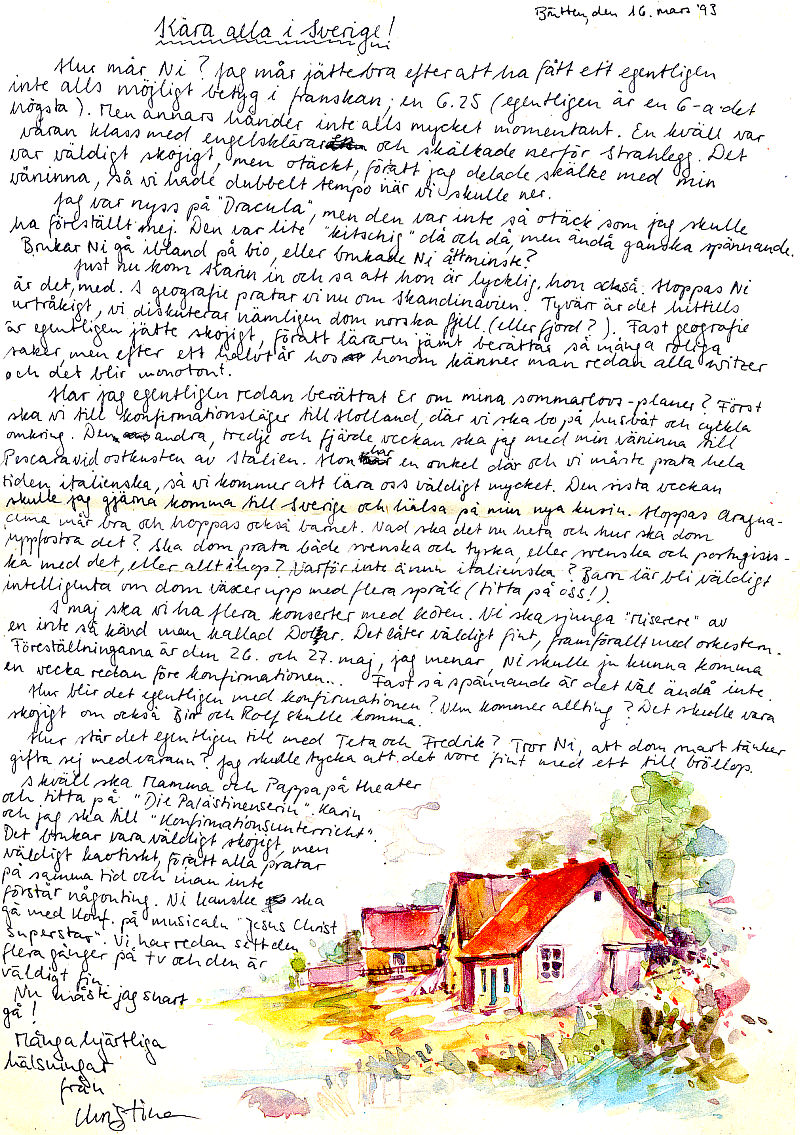 Brütten, den 16. mars '93
Kära alla i Sverige!
Hur mår Ni? Jag mår jättebra efter att ha fått ett egentligen
inte alls möjligt betyg i franskan; en 6.25 (egentligen är en 6-a det
högsta). Men annars händer inte alls mycket momentant. En kväll var
våran klass med engelsklärar och skålkade nerför Strahlegg. Det
var väldigt skojigt, men otäckt, föratt jag delade skälke med min
väninna, så vi hade dubbelt tempo när vi skulle ner.
Jag var nyss på "Dracula", men den var inte så otäck som jag skulle
ha föreställt mej. Den var lite "kitschig" då och då, men ändå ganska spännande.
Brukar Ni gå ibland på bio, eller brukade Ni åttminste?
Just nu kom Karin in och sa att hon är lycklig, hon också. Hoppas Ni
är det, med. I geografie pratar vi nu om Skandinavien. Tyvärr är det hittills
urtråkigt, vi diskuterar nämligen dom norska fjell (eller fjord?). Fast geografie
är egentligen jätte skojigt, föratt läraren jämt berättar så många roliga
saker, men efter ett halvt år hos honom känner man redan alla witzer
och det blir monotont.
Har jag egentligen redan berättat Er om mina sommarlovs-planer? Först
ska vi till konfirmationsläger till Holland, där vi ska bo på husbåt och cykla
omkring. Den andra, tredje och fjärde veckan ska jag med min väninna till
Pescara vid ostkusten av Italien. Hon har en onkel där och vi måste prata hela
tiden italienska, så vi kommer att lära oss väldigt mycket. Den sista veckan
skulle jag gjärna komma till Sverige och hälsa på min nya kusin. Hoppas Aragua-
cima mår bra och hoppas också barnet. Vad ska det nu heta och hur ska dom
uppfostra det? Ska dom prata både svenska och tyska, eller svenska och portugisis-
ka med det, eller allt ihop? Varför inte ännu italienska? Barn lär bli väldigt
intelligenta om dom växer upp med flera språk (titta på oss!).
I maj ska vi ha flera konserter med kören. Vi ska sjunga "Miserere" av
en inte så känd man kallad Dotzar. Det låter väldigt fint, framförallt med orkestern.
Föreställningarna är den 26. och 27. maj, jag menar, Ni skulle ju kunna komma
en vecka redan före konfirmationen... Fast så spännande är det väl ändå inte.
Hur blir det egentligen med konfirmationen? Vem kommer allting? Det skulle vara
skojigt om också Bir och Rolf skulle komma.
Hur står det egentligen till med Teta och Fredrik? Tror Ni, att dom snart tänker
gifta sej med varann? Jag skulle tycka att det vore fint med ett till bröllop.
I kväll ska Mamma och Pappa på theater
och titta på "Die Palästinenserin". Karin
och jag ska till "Konfirmationsunterricht".
Det brukar vara väldigt skojigt, men
väldigt kaotiskt, föratt alla pratar
på samma tid och man inte
förstår någonting. Vi kanske ska
gå med Konf. på musicaln "Jesus Christ
Superstar". Vi har redan sett den
flera gånger på tv och den är
väldigt fin.
Nu måste jag snart
gå!
Många hjärtliga
hälsningar
från
Christina